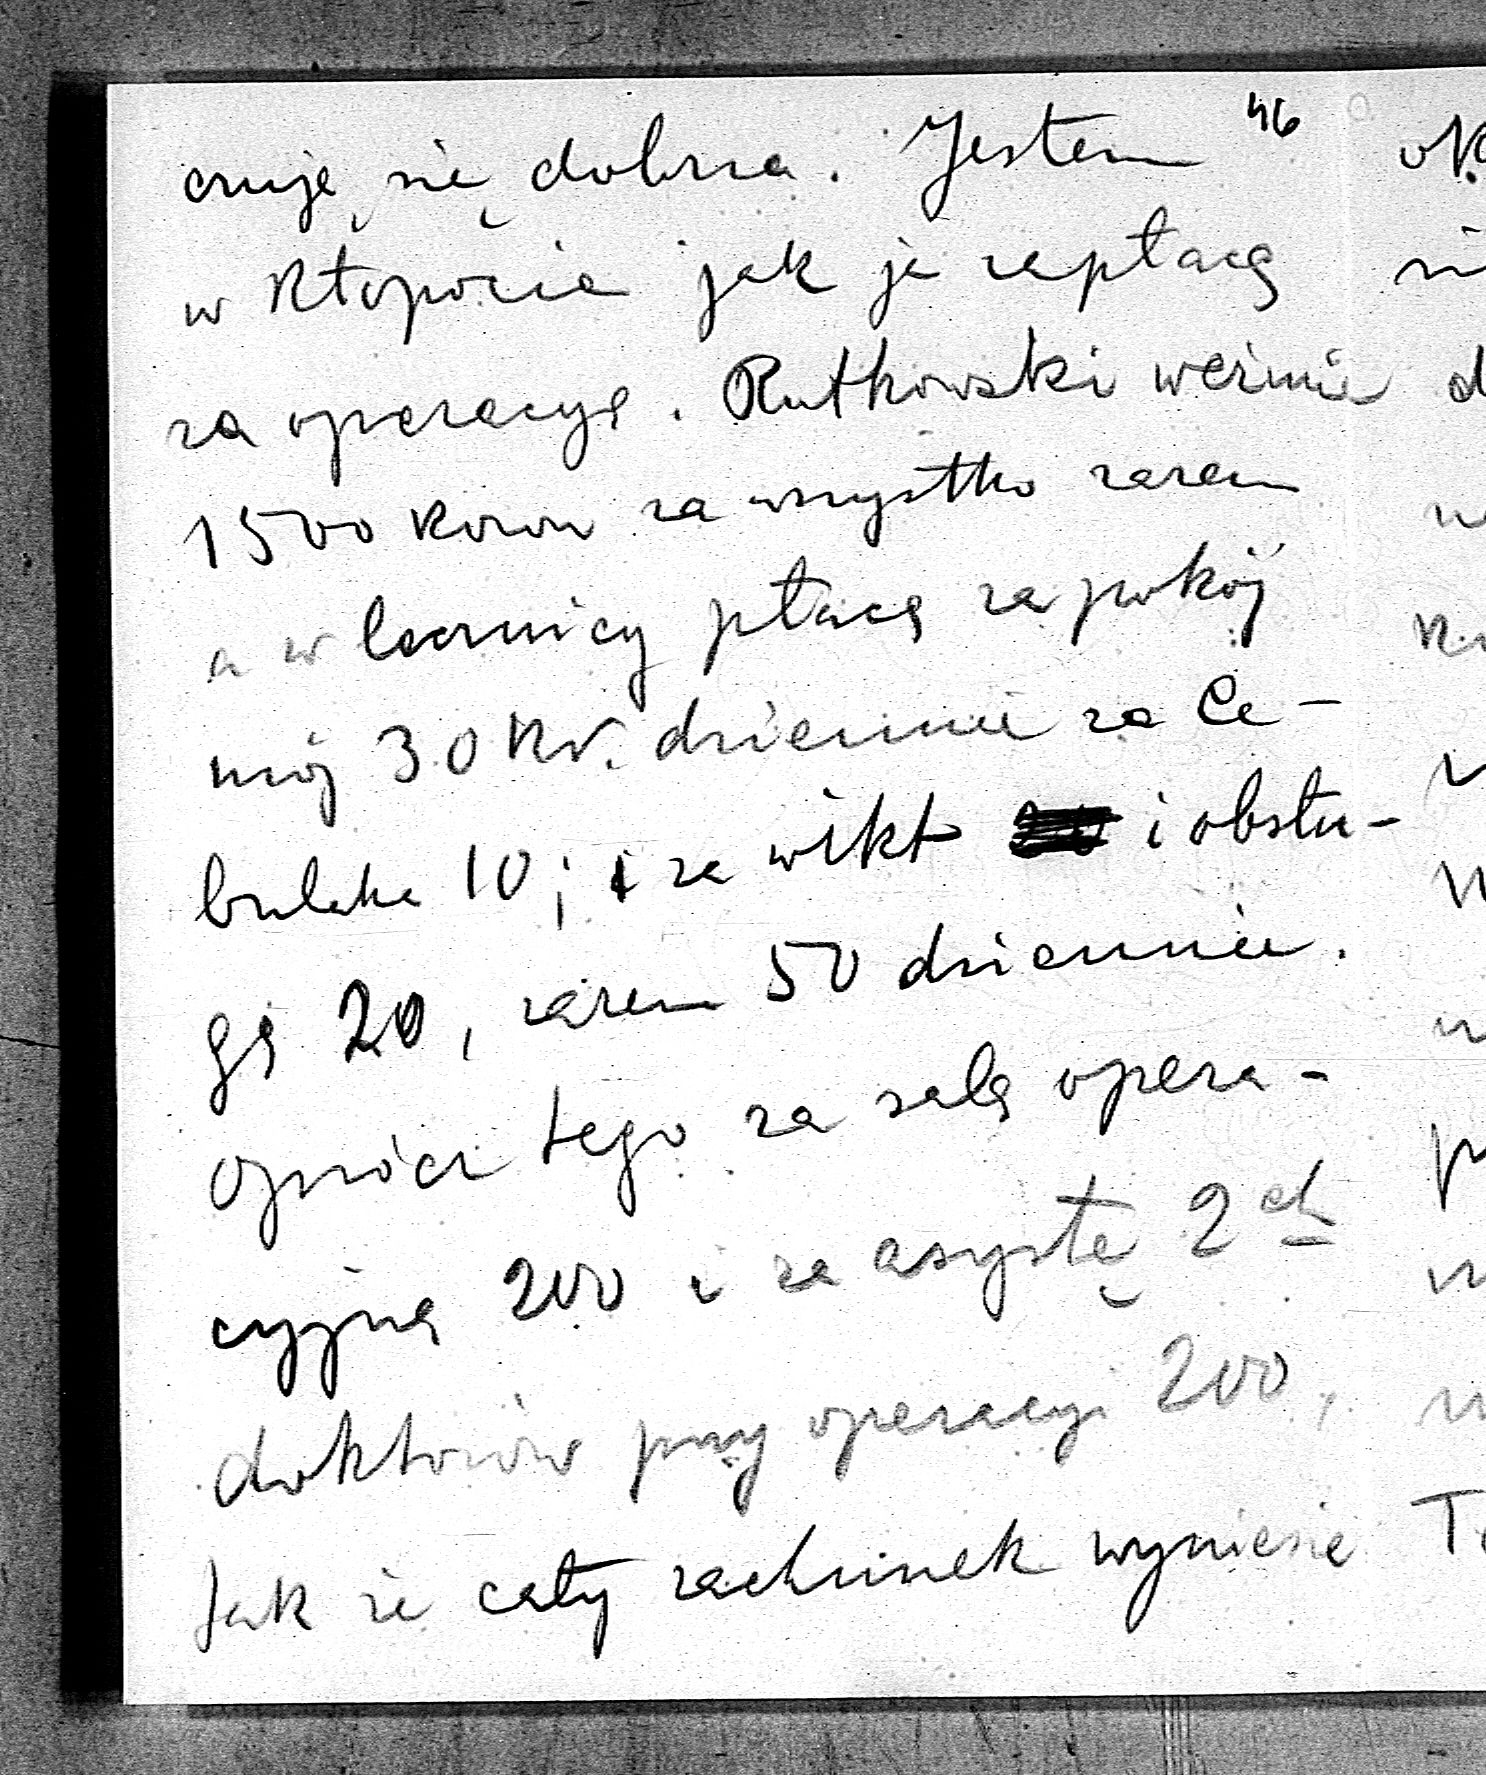 46
czuję się dobrze. Jestem
w kłopocie jak ja zapłacę
za operacyę. Rutkowski weźmie
1500 koron za wszystko razem
a w lecznicy płacę za pokój
mój 30 kr. dziennie za Ce-
bulskę 10; i za wikt i obsłu-
gę 20, razem 50 dziennie.
oprócz tego za salę opera-
cyjną 200 i za asystę 2ch
doktorów przy operacyi 200,
tak że cały rachunek wyniesie